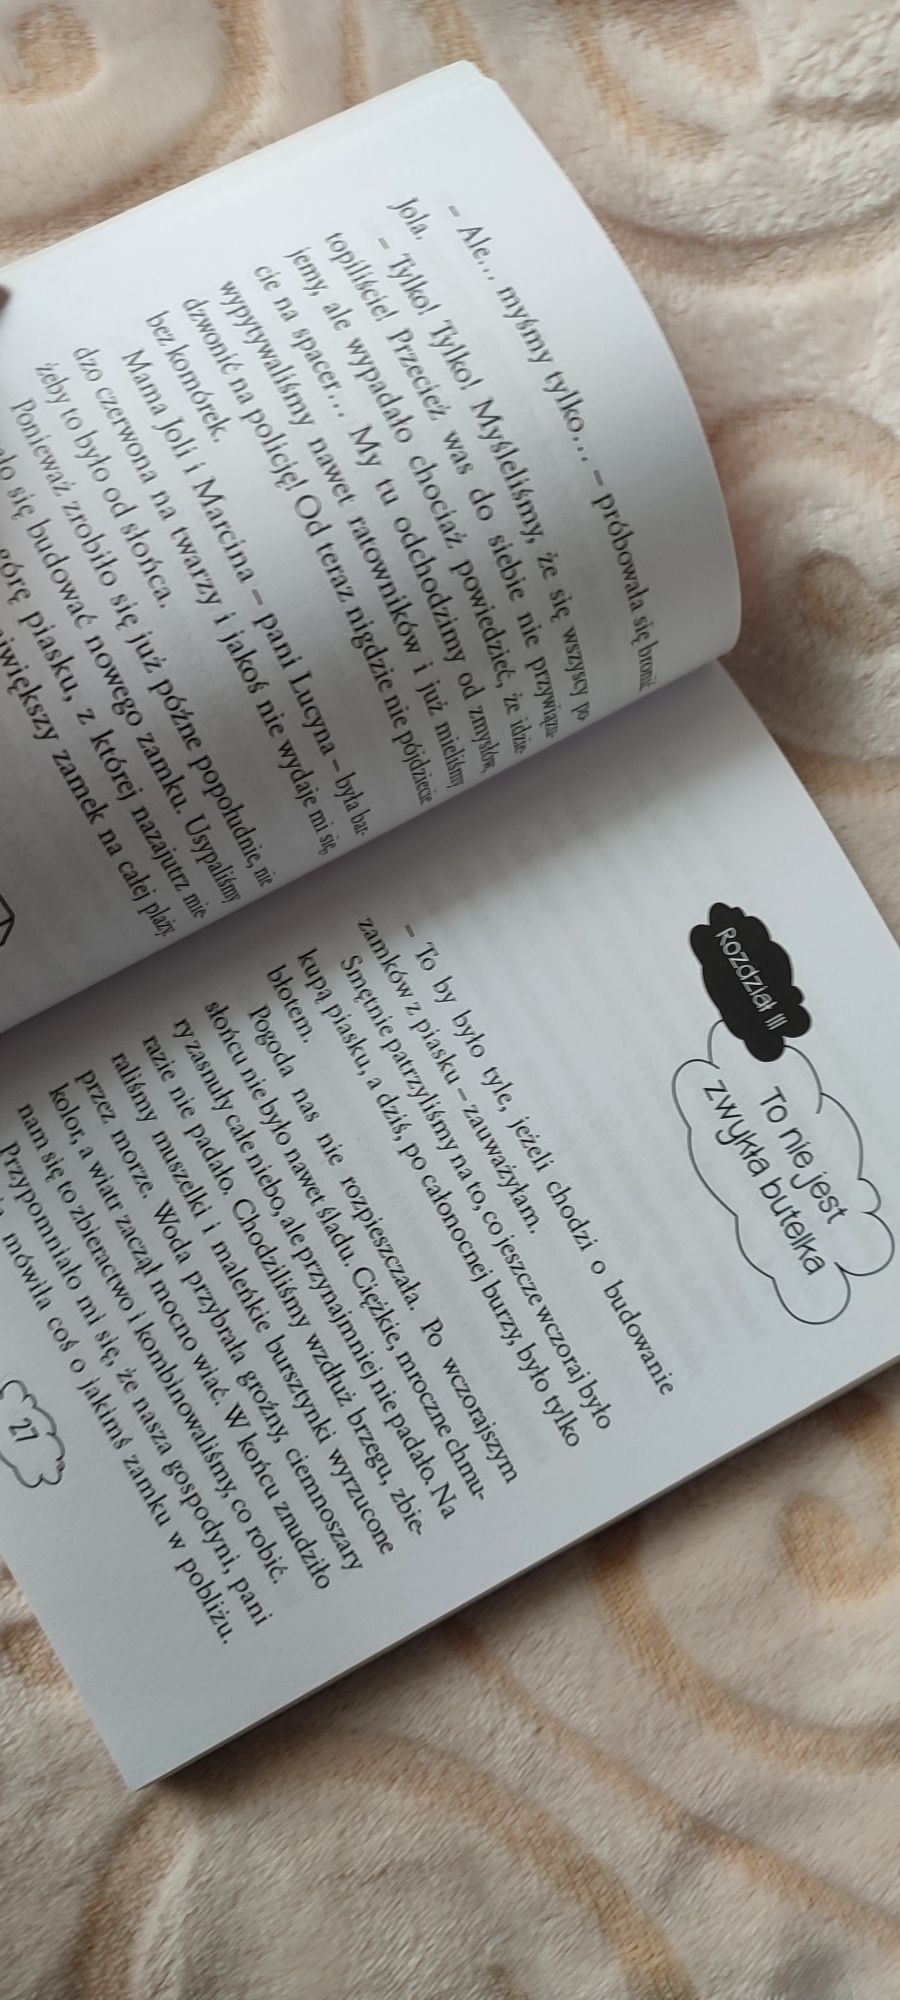 – Ale... myśmy tylko... – próbowała się bronić
Jola.
– Tylko! Tylko! Myśleliśmy, że się wszyscy po-
topiliście! Przecież was do siebie nie przywiązu-
jemy, ale wypadało chociaż powiedzieć, że idzie-
cie na spacer... My tu odchodzimy od zmysłów,
wypytywaliśmy nawet ratowników i już mieliśmy
dzwonić na policję! Od teraz nigdzie nie pójdziecie
bez komórek.
Mama Joli i Marcina – pani Lucyna – była bar-
dzo czerwona na twarzy i jakoś nie wydaje mi się,
żeby to było od słońca.
Ponieważ zrobiło się już późne popołudnie, nie
się budować nowego zamku. Usypaliśmy
górę piasku, z której nazajutrz mie-
największy zamek na całej plaży.
Rozdział III
To nie jest
zwykła butelka
– To by było tyle, jeżeli chodzi o budowanie
zamków z piasku – zauważyłam.
Smętnie patrzyliśmy na to, co jeszcze wczoraj było
kupą piasku, a dziś, po całonocnej burzy, było tylko
błotem.
Pogoda nas nie rozpieszczała. Po wczorajszym
słońcu nie było nawet śladu. Ciężkie, mroczne chmu-
ry zasnuły całe niebo, ale przynajmniej nie padało. Na
razie nie padało. Chodziliśmy wzdłuż brzegu, zbie-
raliśmy muszelki i maleńkie bursztynki wyrzucone
przez morze. Woda przybrała groźny, ciemnoszary
kolor, a wiatr zaczął mocno wiać. W końcu znudziło
nam się to zbieractwo i kombinowaliśmy, co robić.
Przypomniało mi się, że nasza gospodyni, pani
mówiła coś o jakimś zamku w pobliżu.
27